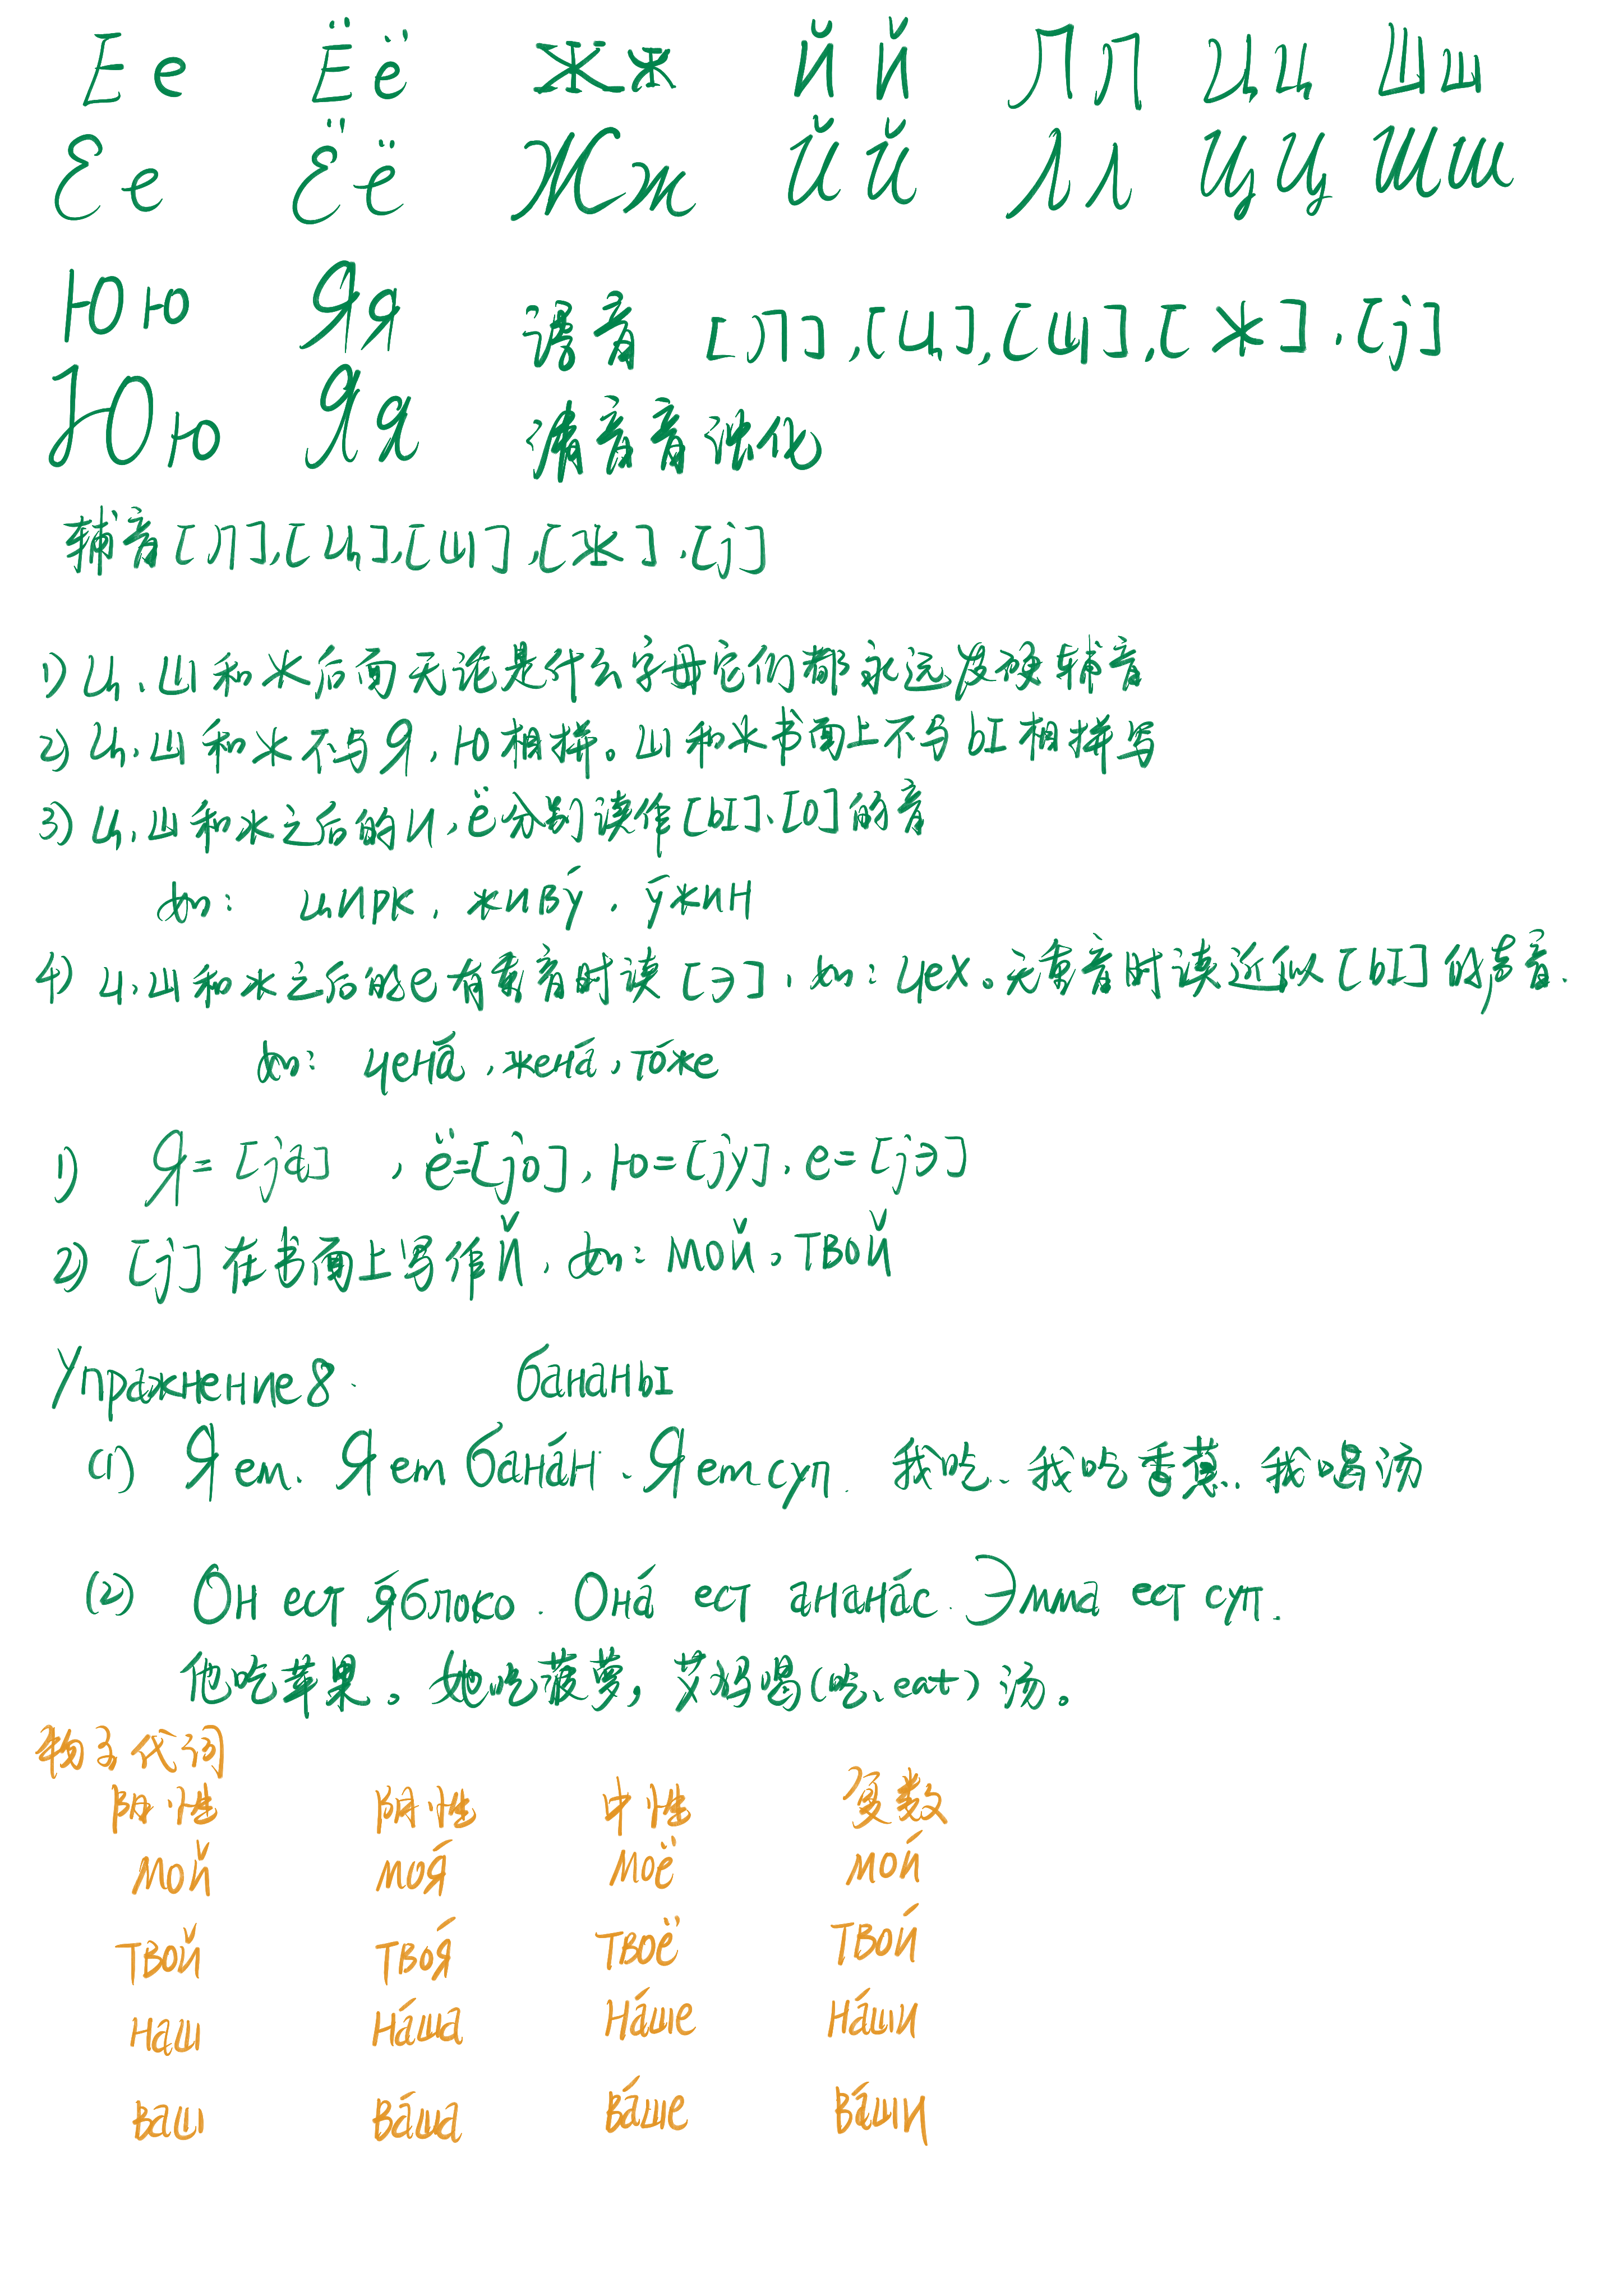 Е е Ё ё Ж ж Й й Л л Ц ц Ш ш
Е е Ё ё Ж ж Й й Л л Ц ц Ш ш
Ю ю Я я 语音 [Л],[ц],[ш],[ж],[j]
Ю ю Я я 清音音浊化
辅音[Л],[ц],[ш],[ж],[j]
1) ц、ш和ж后面无论是什么字母它们都永远发硬辅音
2) ц、ш和ж不与Я,Ю相拼。ш和ж书面上不与ы相拼写
3) ц、ш和ж之后的и,ё分别读作[ы]、[о]的音
如: цирк, живу́, у́жин
4) ц、ш和ж之后的е有重音时读[э],如:цех。无重音时读近似[ы]的声音.
如: цена́, жена́, то́же
1) Я=[ja], ё=[jo], ю=[jy], е=[jэ]
2) [j]在书面上写作й,如:мой,твой
Упражнение8. бананы
(1) Я ем. Я ем бана́н. Я ем суп. 我吃、我吃香蕉. 我喝汤
(2) Он ест я́блоко. Она́ ест анана́с. Эмма ест суп.
他吃苹果。她吃菠萝,艾玛喝(吃、eat)汤。
物主代词
阳性 阴性 中性 复数
мой моя́ моё мои́
твой твоя́ твоё твои́
наш на́ша на́ше на́ши
ваш ва́ша ва́ше ва́ши